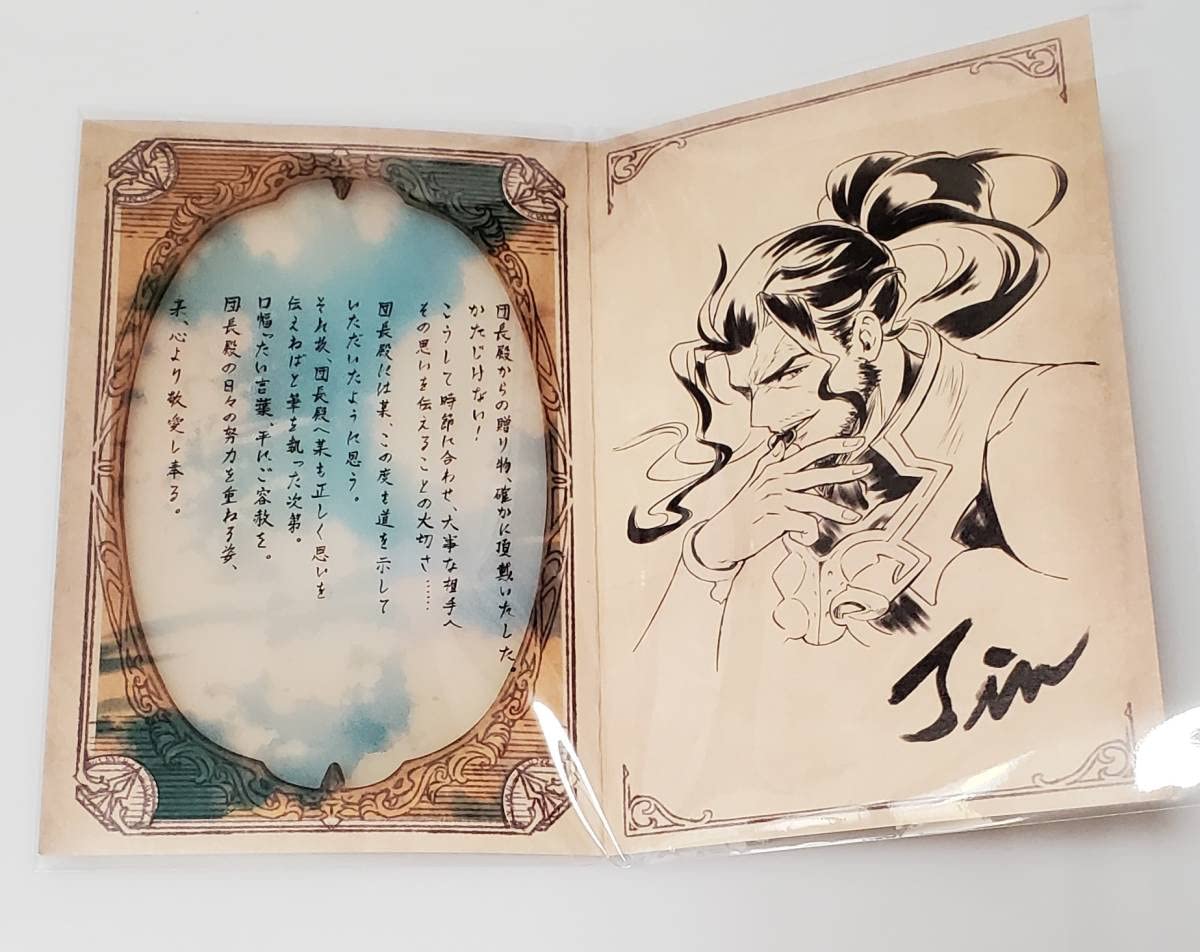 団長殿からの贈り物、確かに頂戴いたした。
かたじけない！
こうして時節に合わせ、大事な相手へ
その思いを伝えることの大切さ……
団長殿には某、この度も道を示して
いただいたように思う。
それ故、団長殿へ某も正しく思いを
伝えねばと筆を執った次第。
口幅ったい言葉、平にご容赦を。
団長殿の日々の努力を重ねる姿、
某、心より敬愛し奉る。
Jin